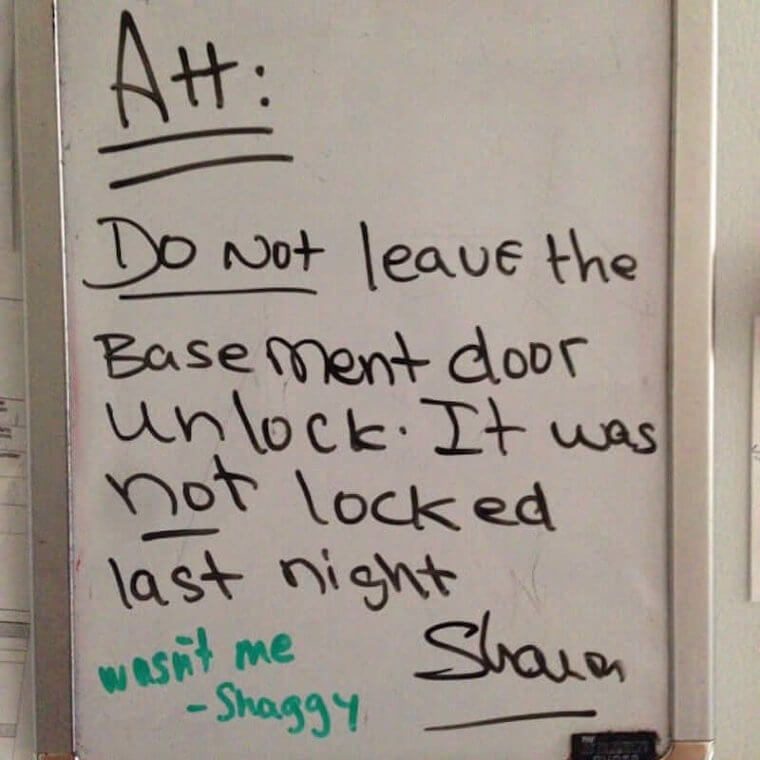 Att:
Do Not leave the
Basement door
unlock. It was
not locked
last night
wasn't me
-Shaggy
Sharon